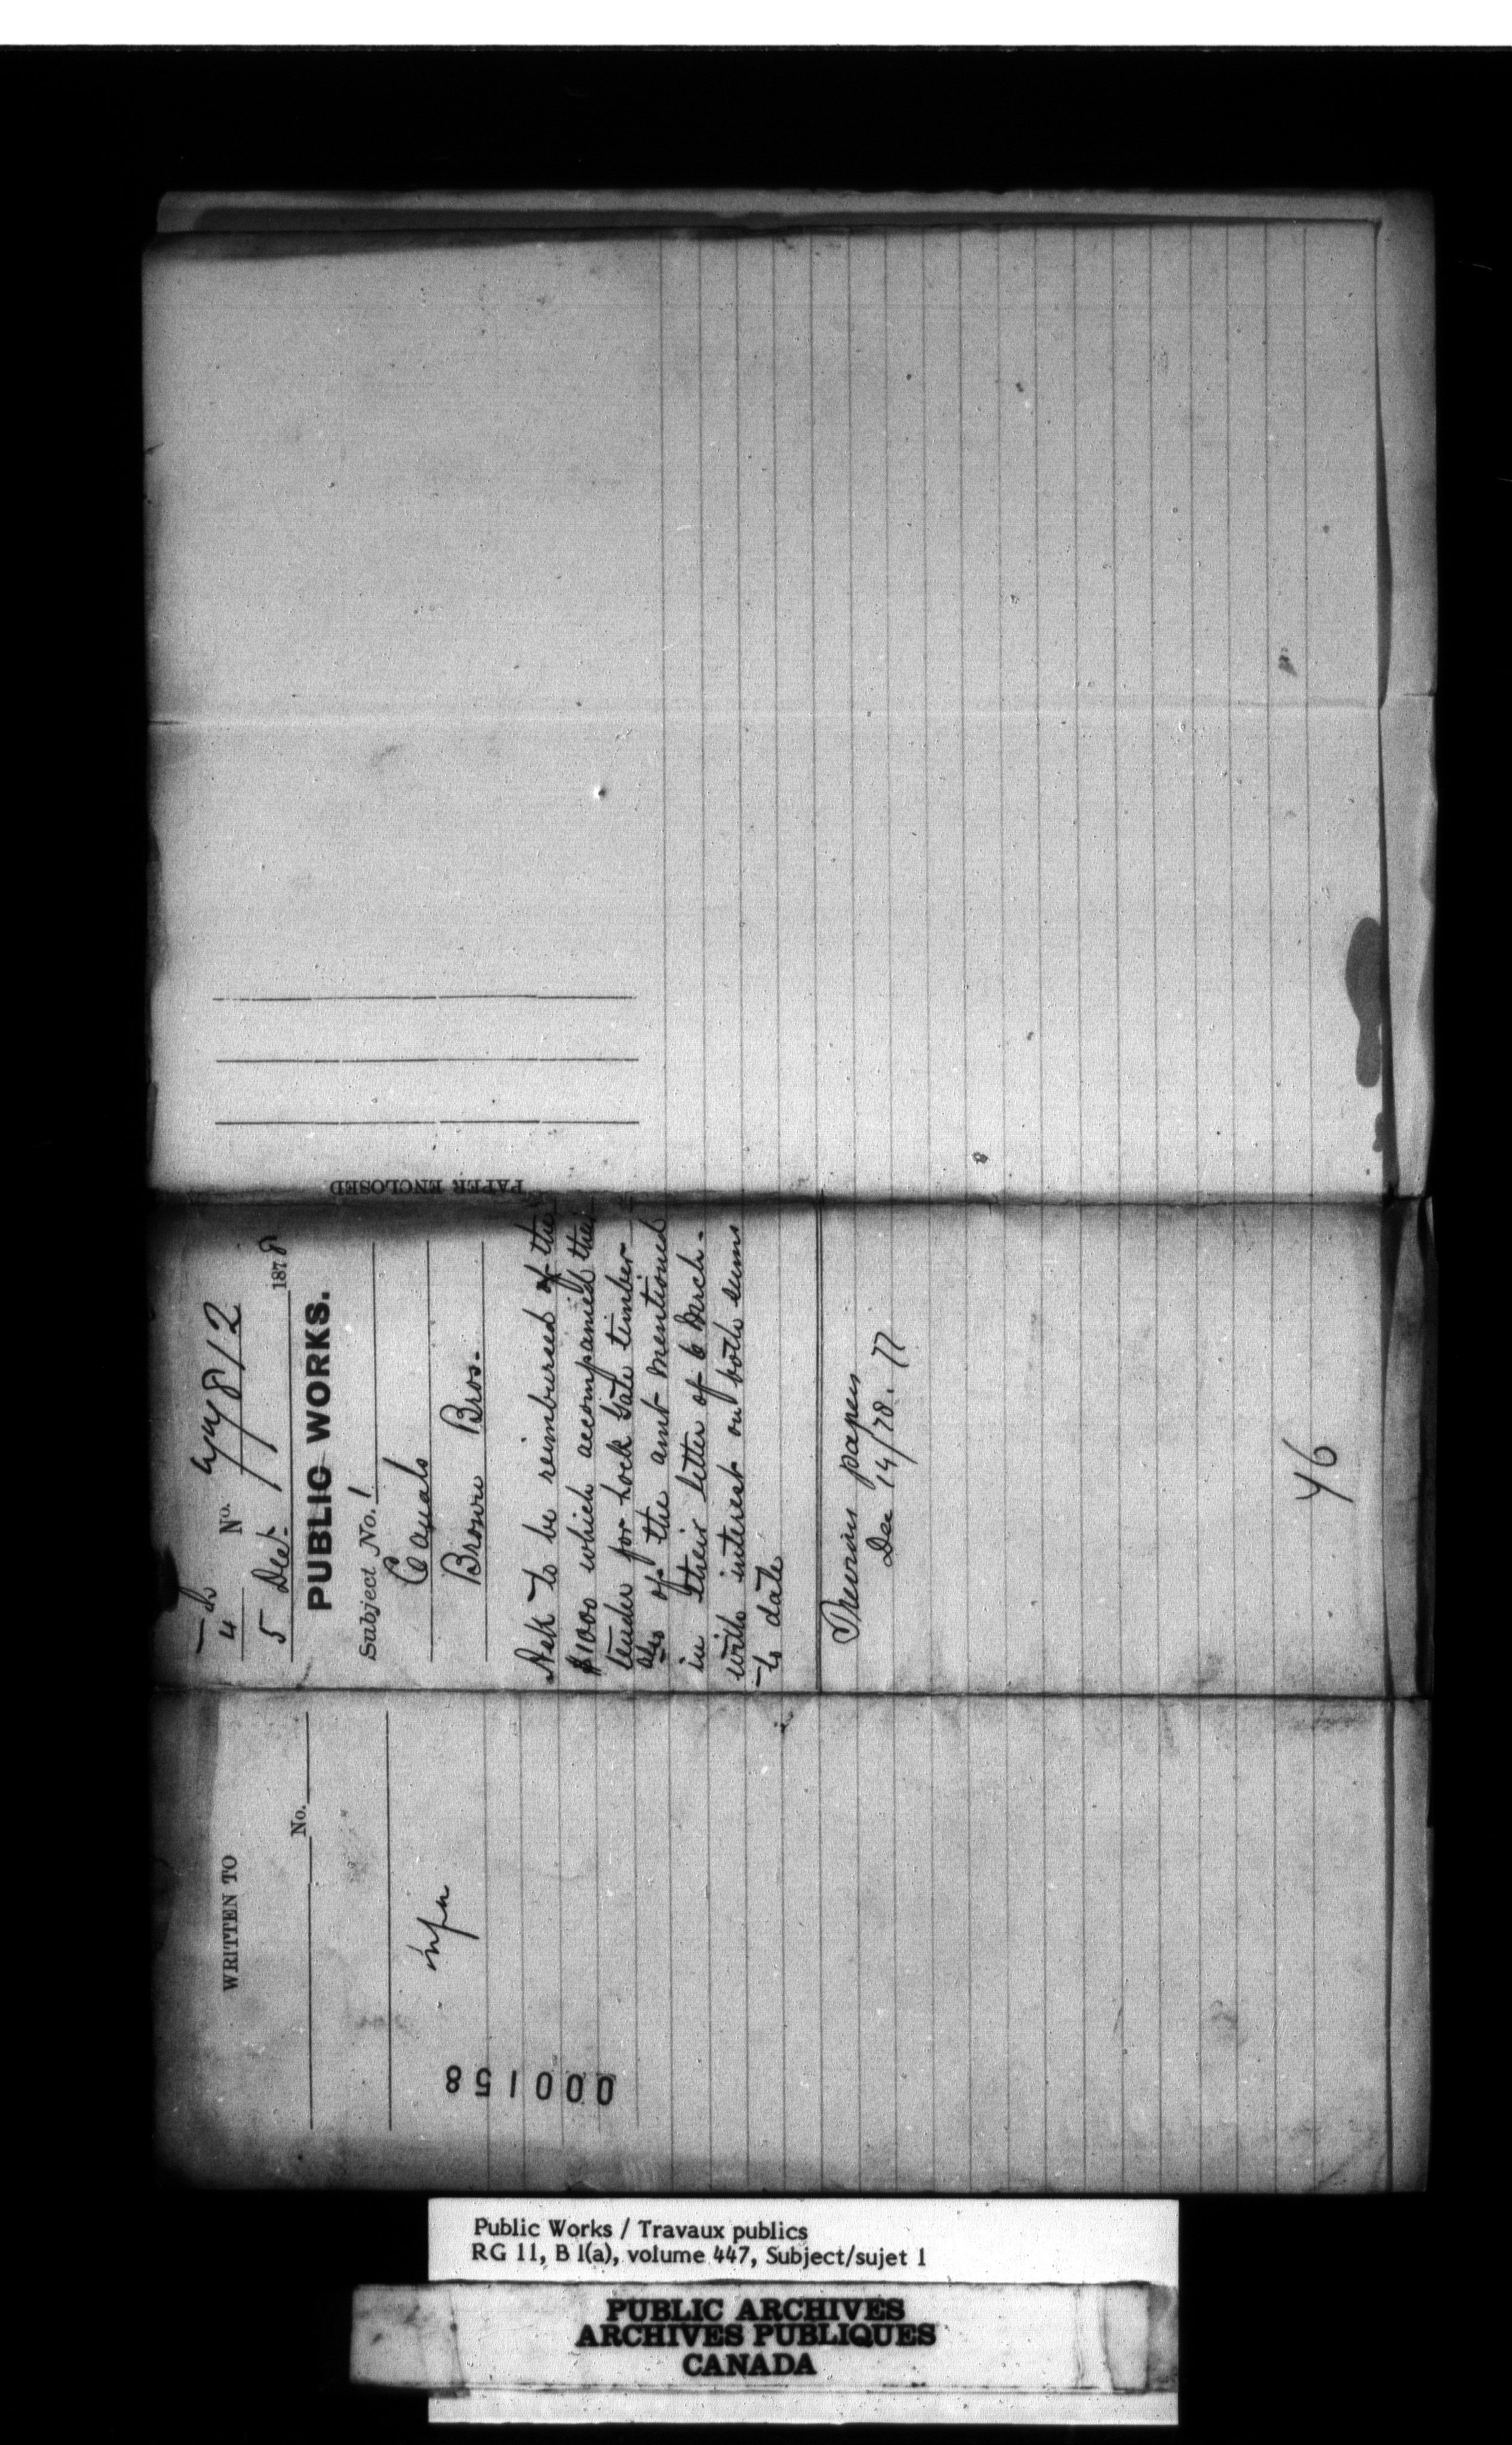 WRITTEN TO
No.
000158
4 No. 77812
5 Dec. 1878
PUBLIC WORKS.
Subject No. 1
Canals
Brown Bros.
Ask to be reimbursed of the
$1000 which accompanied their
tender for lock gate timber
also of the amt mentioned
in their letter of 6 March.
with interest on both sums
to date
Previous papers
Dec 14/78. 77
46
PAPER ENCLOSED
Public Works / Travaux publics
RG 11, B 1(a), volume 447, Subject/sujet 1
PUBLIC ARCHIVES
ARCHIVES PUBLIQUES
CANADA